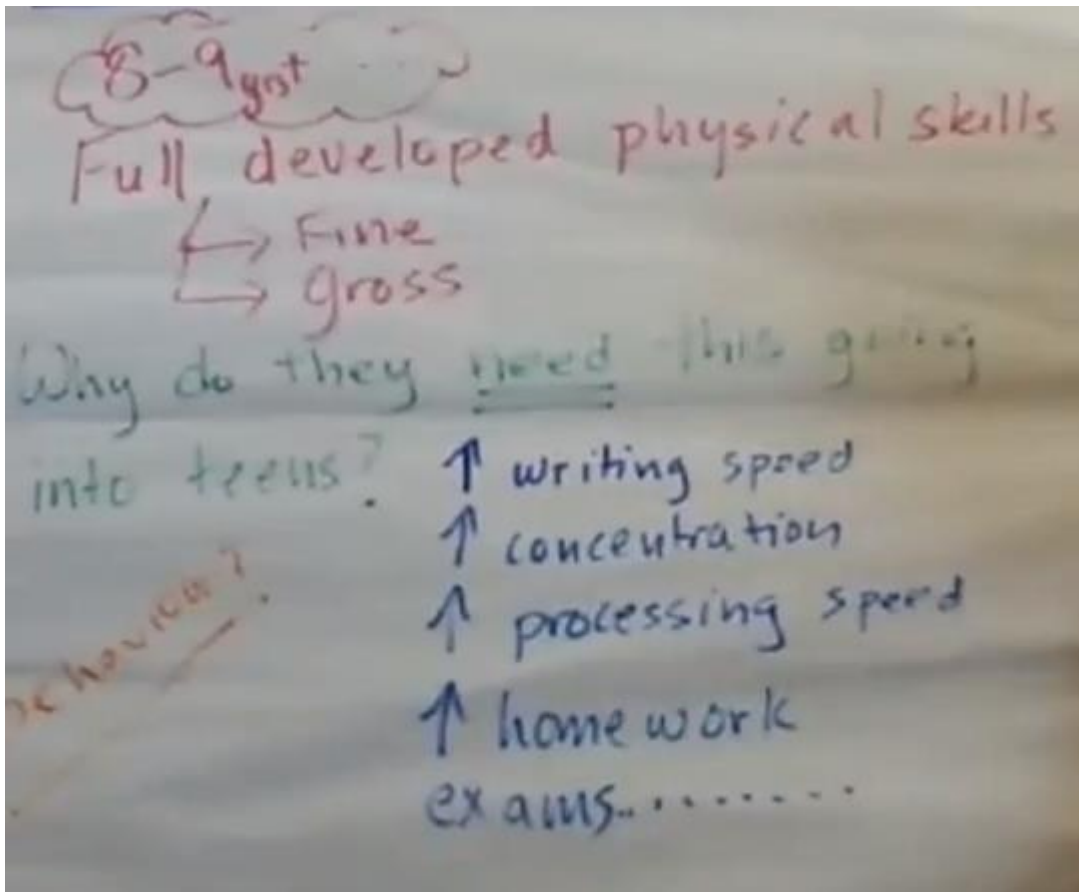 8-9yrs+
Full developed physical skills
→ Fine
→ gross
Why do they need this going
into teens?
↑ writing speed
↑ concentration
↑ processing speed
↑ homework
exams.........